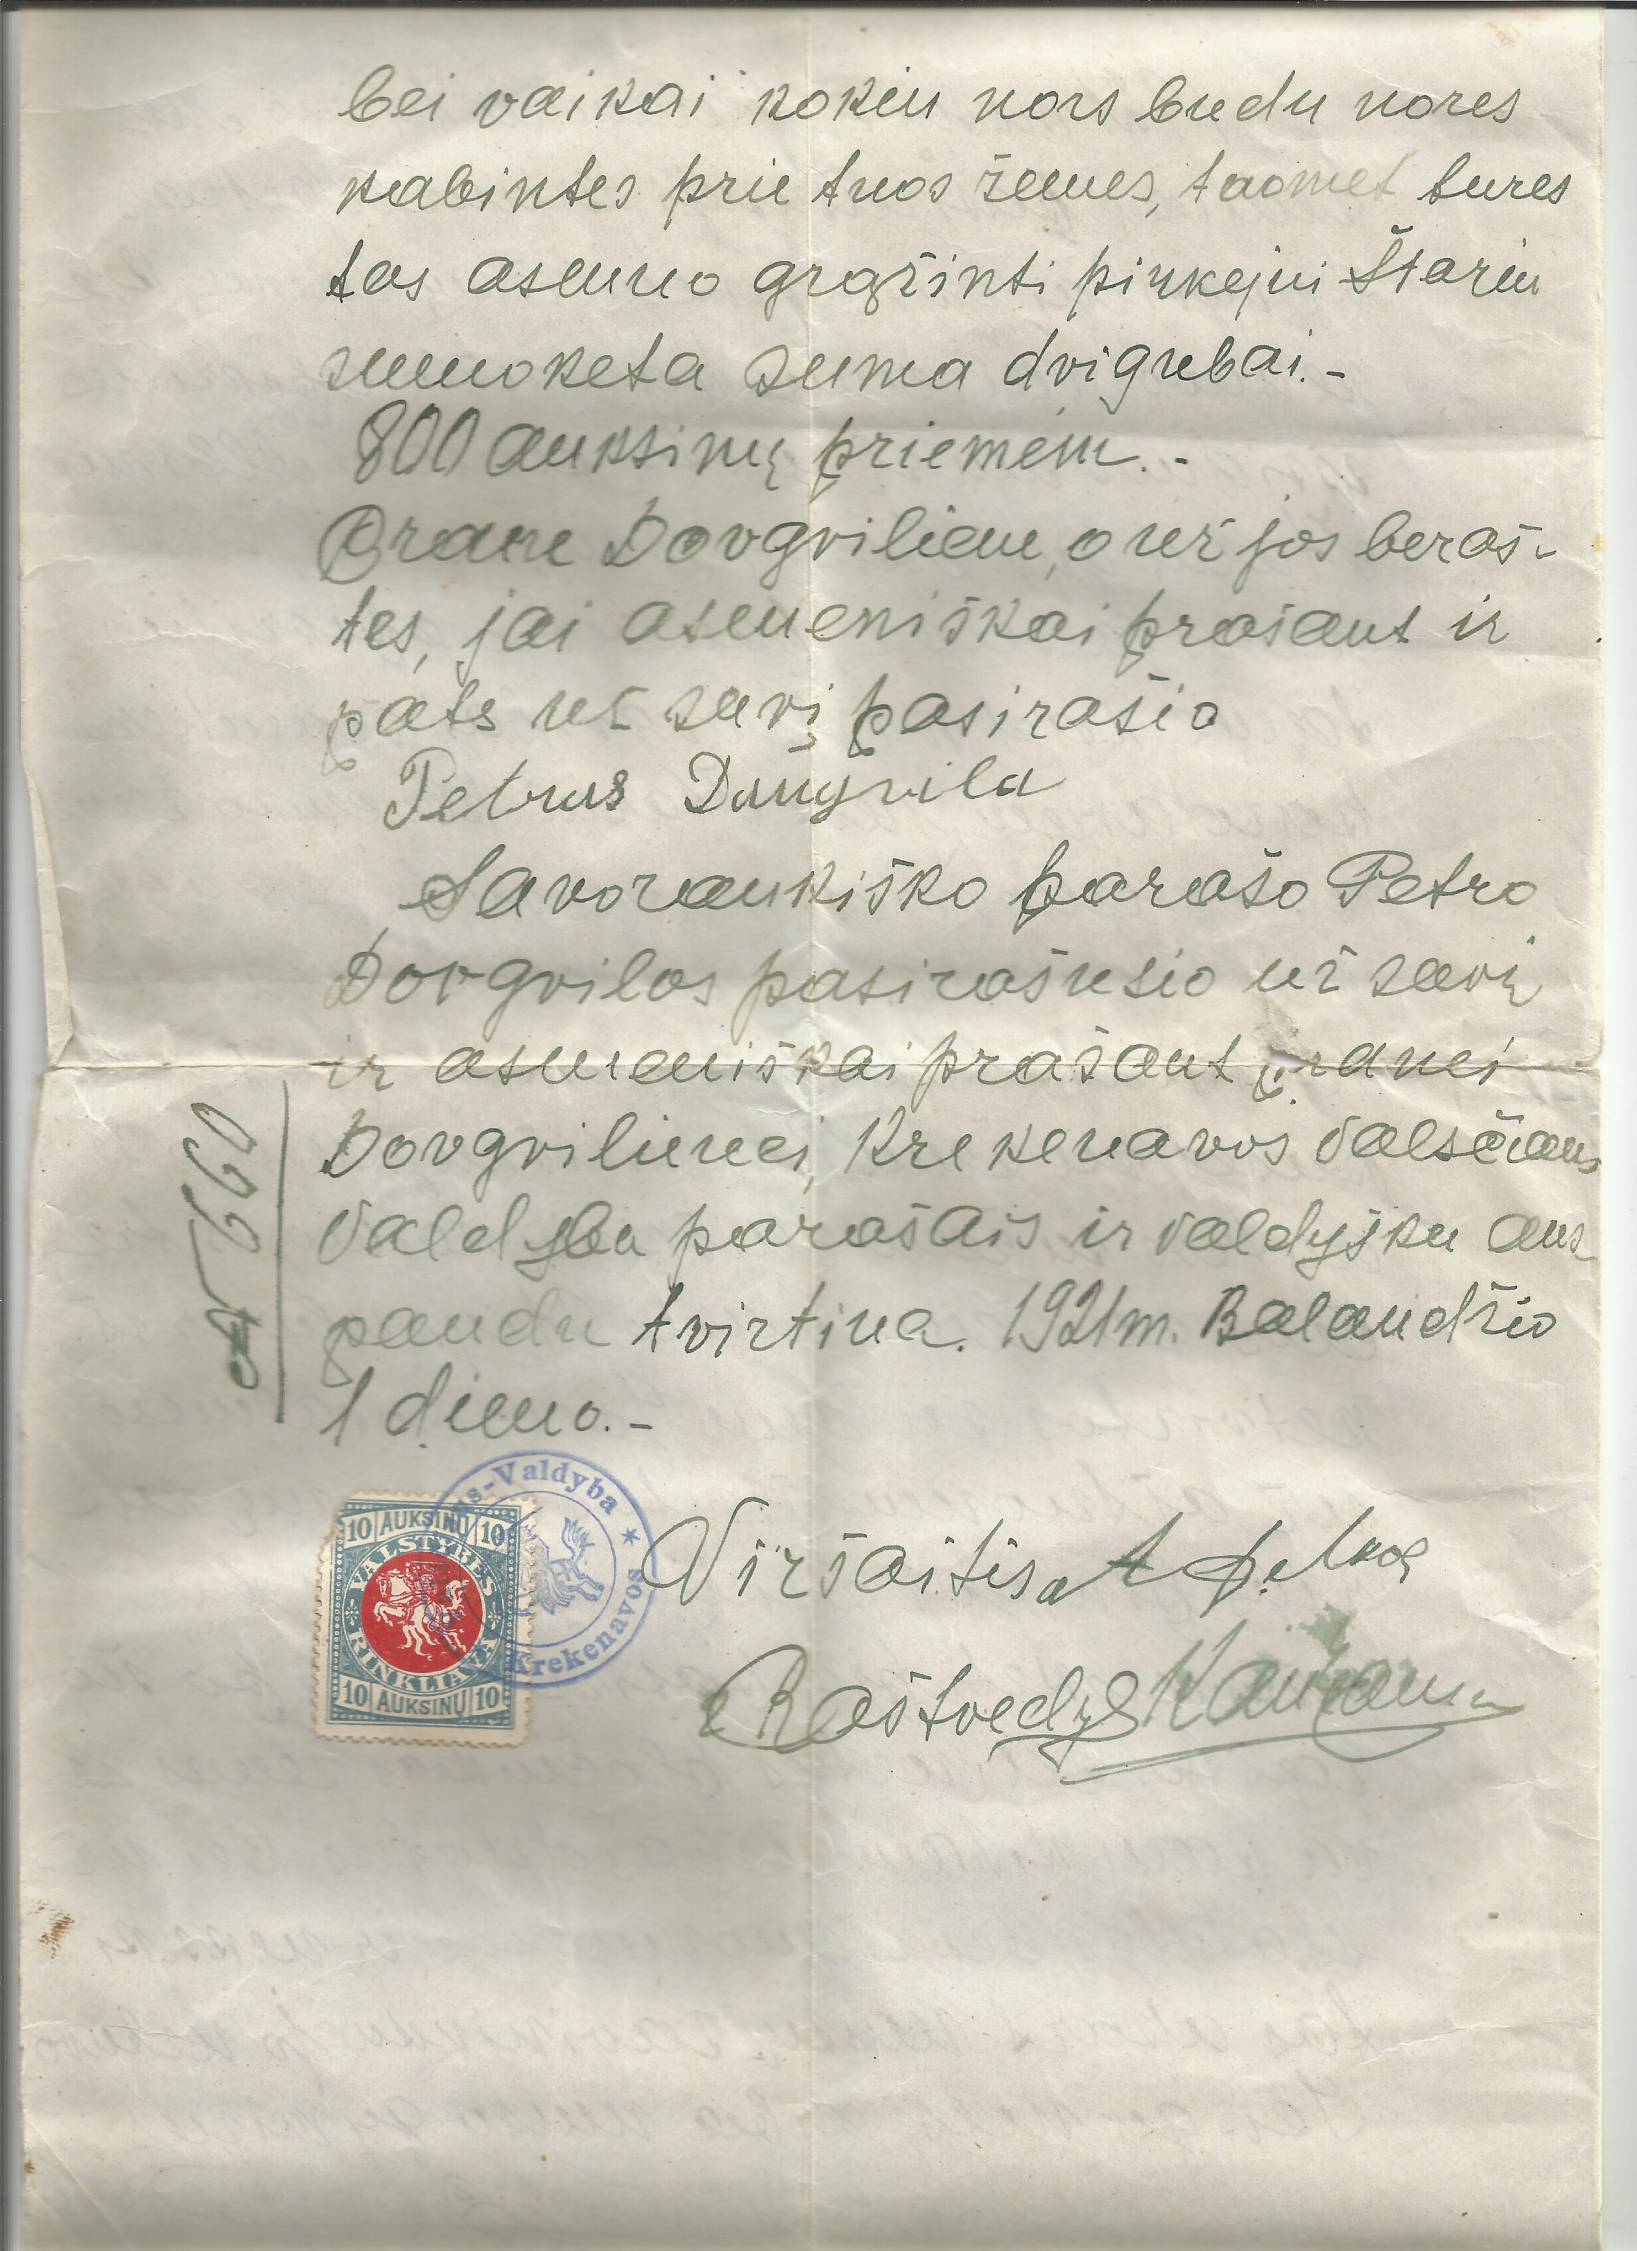 bei vaikai kokiu nors budu nores
kabintes prie tuos žemes, tuomet tures
tas asmuo grąžinti pirkejui Štariu
sumoketa suma dvigubai.-
800 auksinų priemėm.-
Orane Dovgviliene, o už jos beraš-
tes, jai asmeniškai prašant ir
pats už savį pasirašia
Petras Daugvila
Savorankiško parašo Petro
Dovgvilos pasirašusio už savį
ir asmeniškai prašant
Dovgvilienei, Krekenavos Valsčiaus
Valdyba parašais ir valdyšku ans-
paudu tvirtina. 1921 m. Balandžio
1 dieno.-
№ 560
10 AUKSINŲ 10
VALSTYBĖS
RINKLIAVA
10 AUKSINŲ 10
us-Valdyba *
Krekenavos
Viršaitis A
Raštvedys